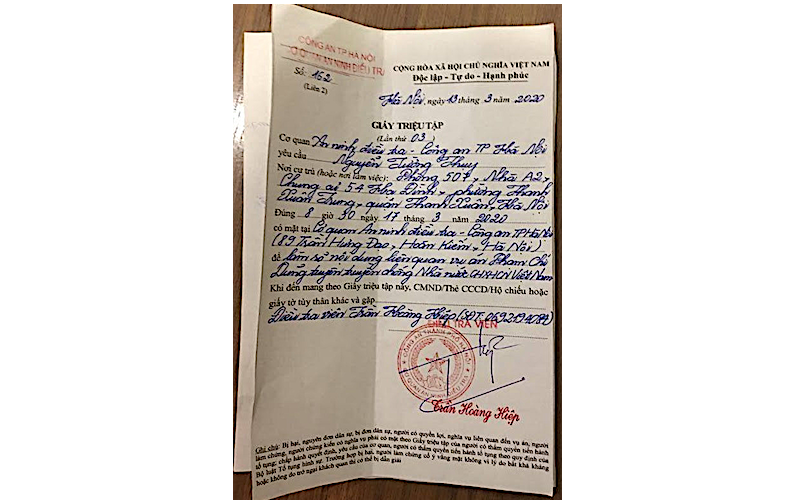 CÔNG AN TP HÀ NỘI
CƠ QUAN AN NINH ĐIỀU TRA
Số: 162
(Liên 2)
CỘNG HÒA XÃ HỘI CHỦ NGHĨA VIỆT NAM
Độc lập - Tự do - Hạnh phúc
Hà Nội, ngày 13 tháng 3 năm 2020
GIẤY TRIỆU TẬP
(Lần thứ 03)
Cơ quan An ninh điều tra - Công an TP Hà Nội
yêu cầu Nguyễn Tường Thụy
Nơi cư trú (hoặc nơi làm việc): Phòng 507, Nhà A2,
Chung cư 54 Hạ Đình, phường Thanh
Xuân Trung, quận Thanh Xuân, Hà Nội
Đúng 8 giờ 30 ngày 17 tháng 3 năm 2020
có mặt tại Cơ quan An ninh điều tra - Công an TP Hà Nội
(89 Trần Hưng Đạo, Hoàn Kiếm, Hà Nội)
để làm rõ nội dung liên quan vụ án Phạm Chí
Dũng tuyên truyền chống Nhà nước CHXHCN Việt Nam
Khi đến mang theo Giấy triệu tập này, CMND/Thẻ CCCD/Hộ chiếu hoặc
giấy tờ tùy thân khác và gặp
Điều tra viên Trần Hoàng Hiệp (SĐT:
ĐIỀU TRA VIÊN
CÔNG AN THÀNH PHỐ HÀ NỘI
CƠ QUAN AN NINH ĐIỀU TRA
Trần Hoàng Hiệp
Ghi chú: Bị hại, nguyên đơn dân sự, bị đơn dân sự, người có quyền lợi, nghĩa vụ liên quan đến vụ án, người
làm chứng, người chứng kiến có nghĩa vụ phải có mặt theo Giấy triệu tập của người có thẩm quyền tiến hành
tố tụng; chấp hành quyết định, yêu cầu của cơ quan, người có thẩm quyền tiến hành tố tụng theo quy định của
Bộ luật Tố tụng hình sự. Trường hợp bị hại, người làm chứng cố ý vắng mặt không vì lý do bất khả kháng
hoặc không do trở ngại khách quan thì có thể bị dẫn giải